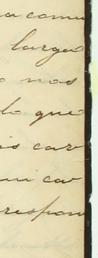 a comu
larga
o nos
lo que
is car
mi ca
respon